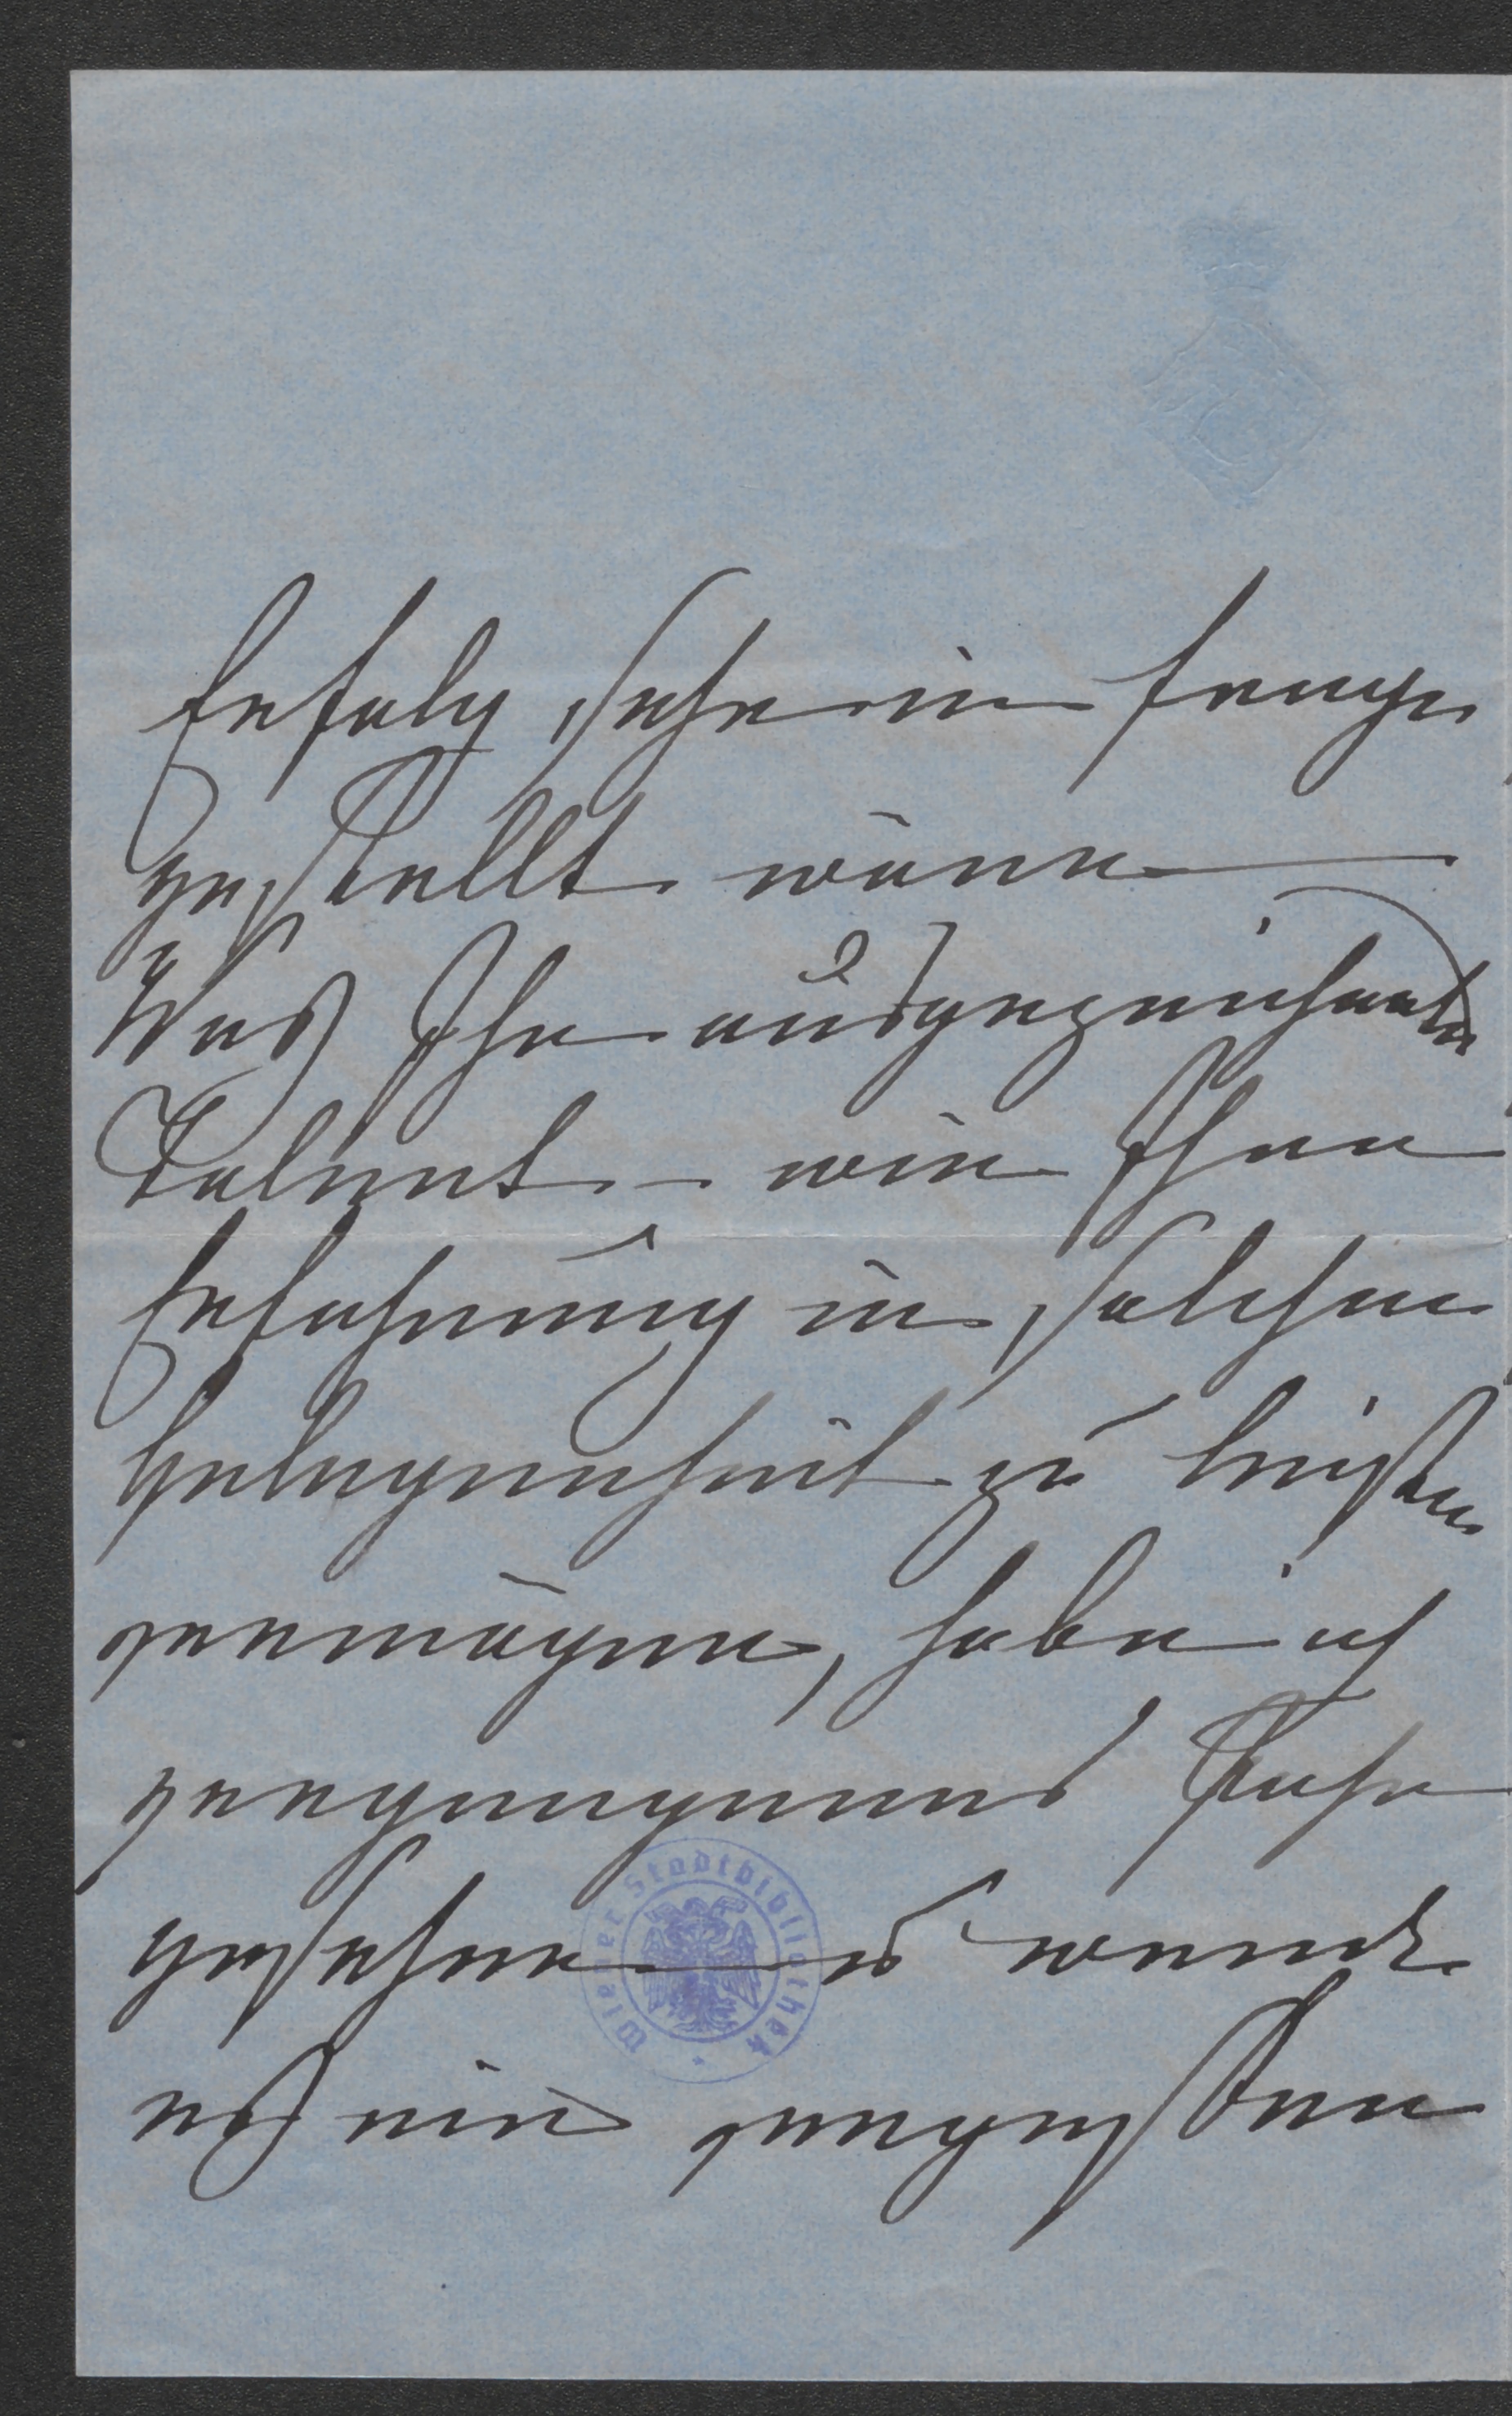 Erfolg sehr in Frage
gestellt wäre
Was Ihr ausgezeichnetes
Talent – wie Ihre
Erfahrung in solchen
Gelegenheit zu leisten
vermögen, habe ich
vergangenes Jahr
gesehen es werde
es nie vergessen
Wiener Stadtbibliothek